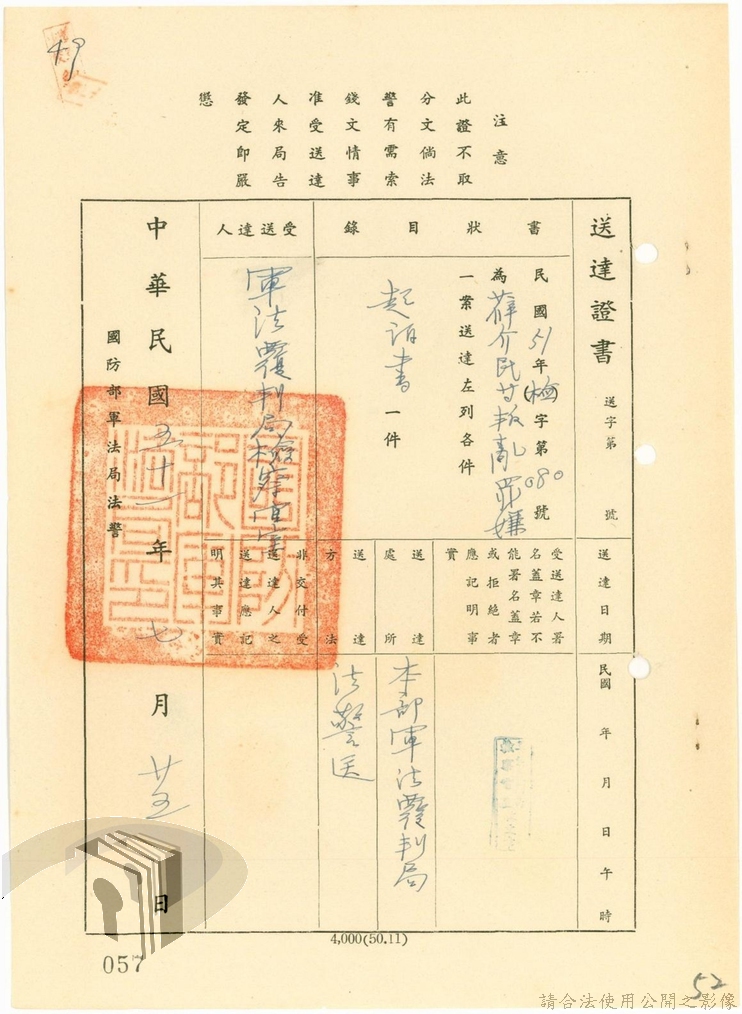 49
注意
此證不取
分文倘法
警有需索
錢文情事
准受送達
人來局告
發定即嚴
懲
送達證書
送字第 號
書狀目錄
民國51年 字第080號
為薛介民等叛亂罪嫌
一案送達左列各件
起訴書一件
受送達人
軍法覆判局檢察官
送達日期
民國 年 月 日 午 時
受送達人署
名蓋章若不
能署名蓋章
或拒絕者
應記明事
實
送達處所
本部軍法覆判局
送達方法
法警送
非交付受
送達人之
送達應記
明其事實
中華民國五十一年七月廿五日
國防部軍法局法警
4,000(50.11)
057
52
請合法使用公開之影像